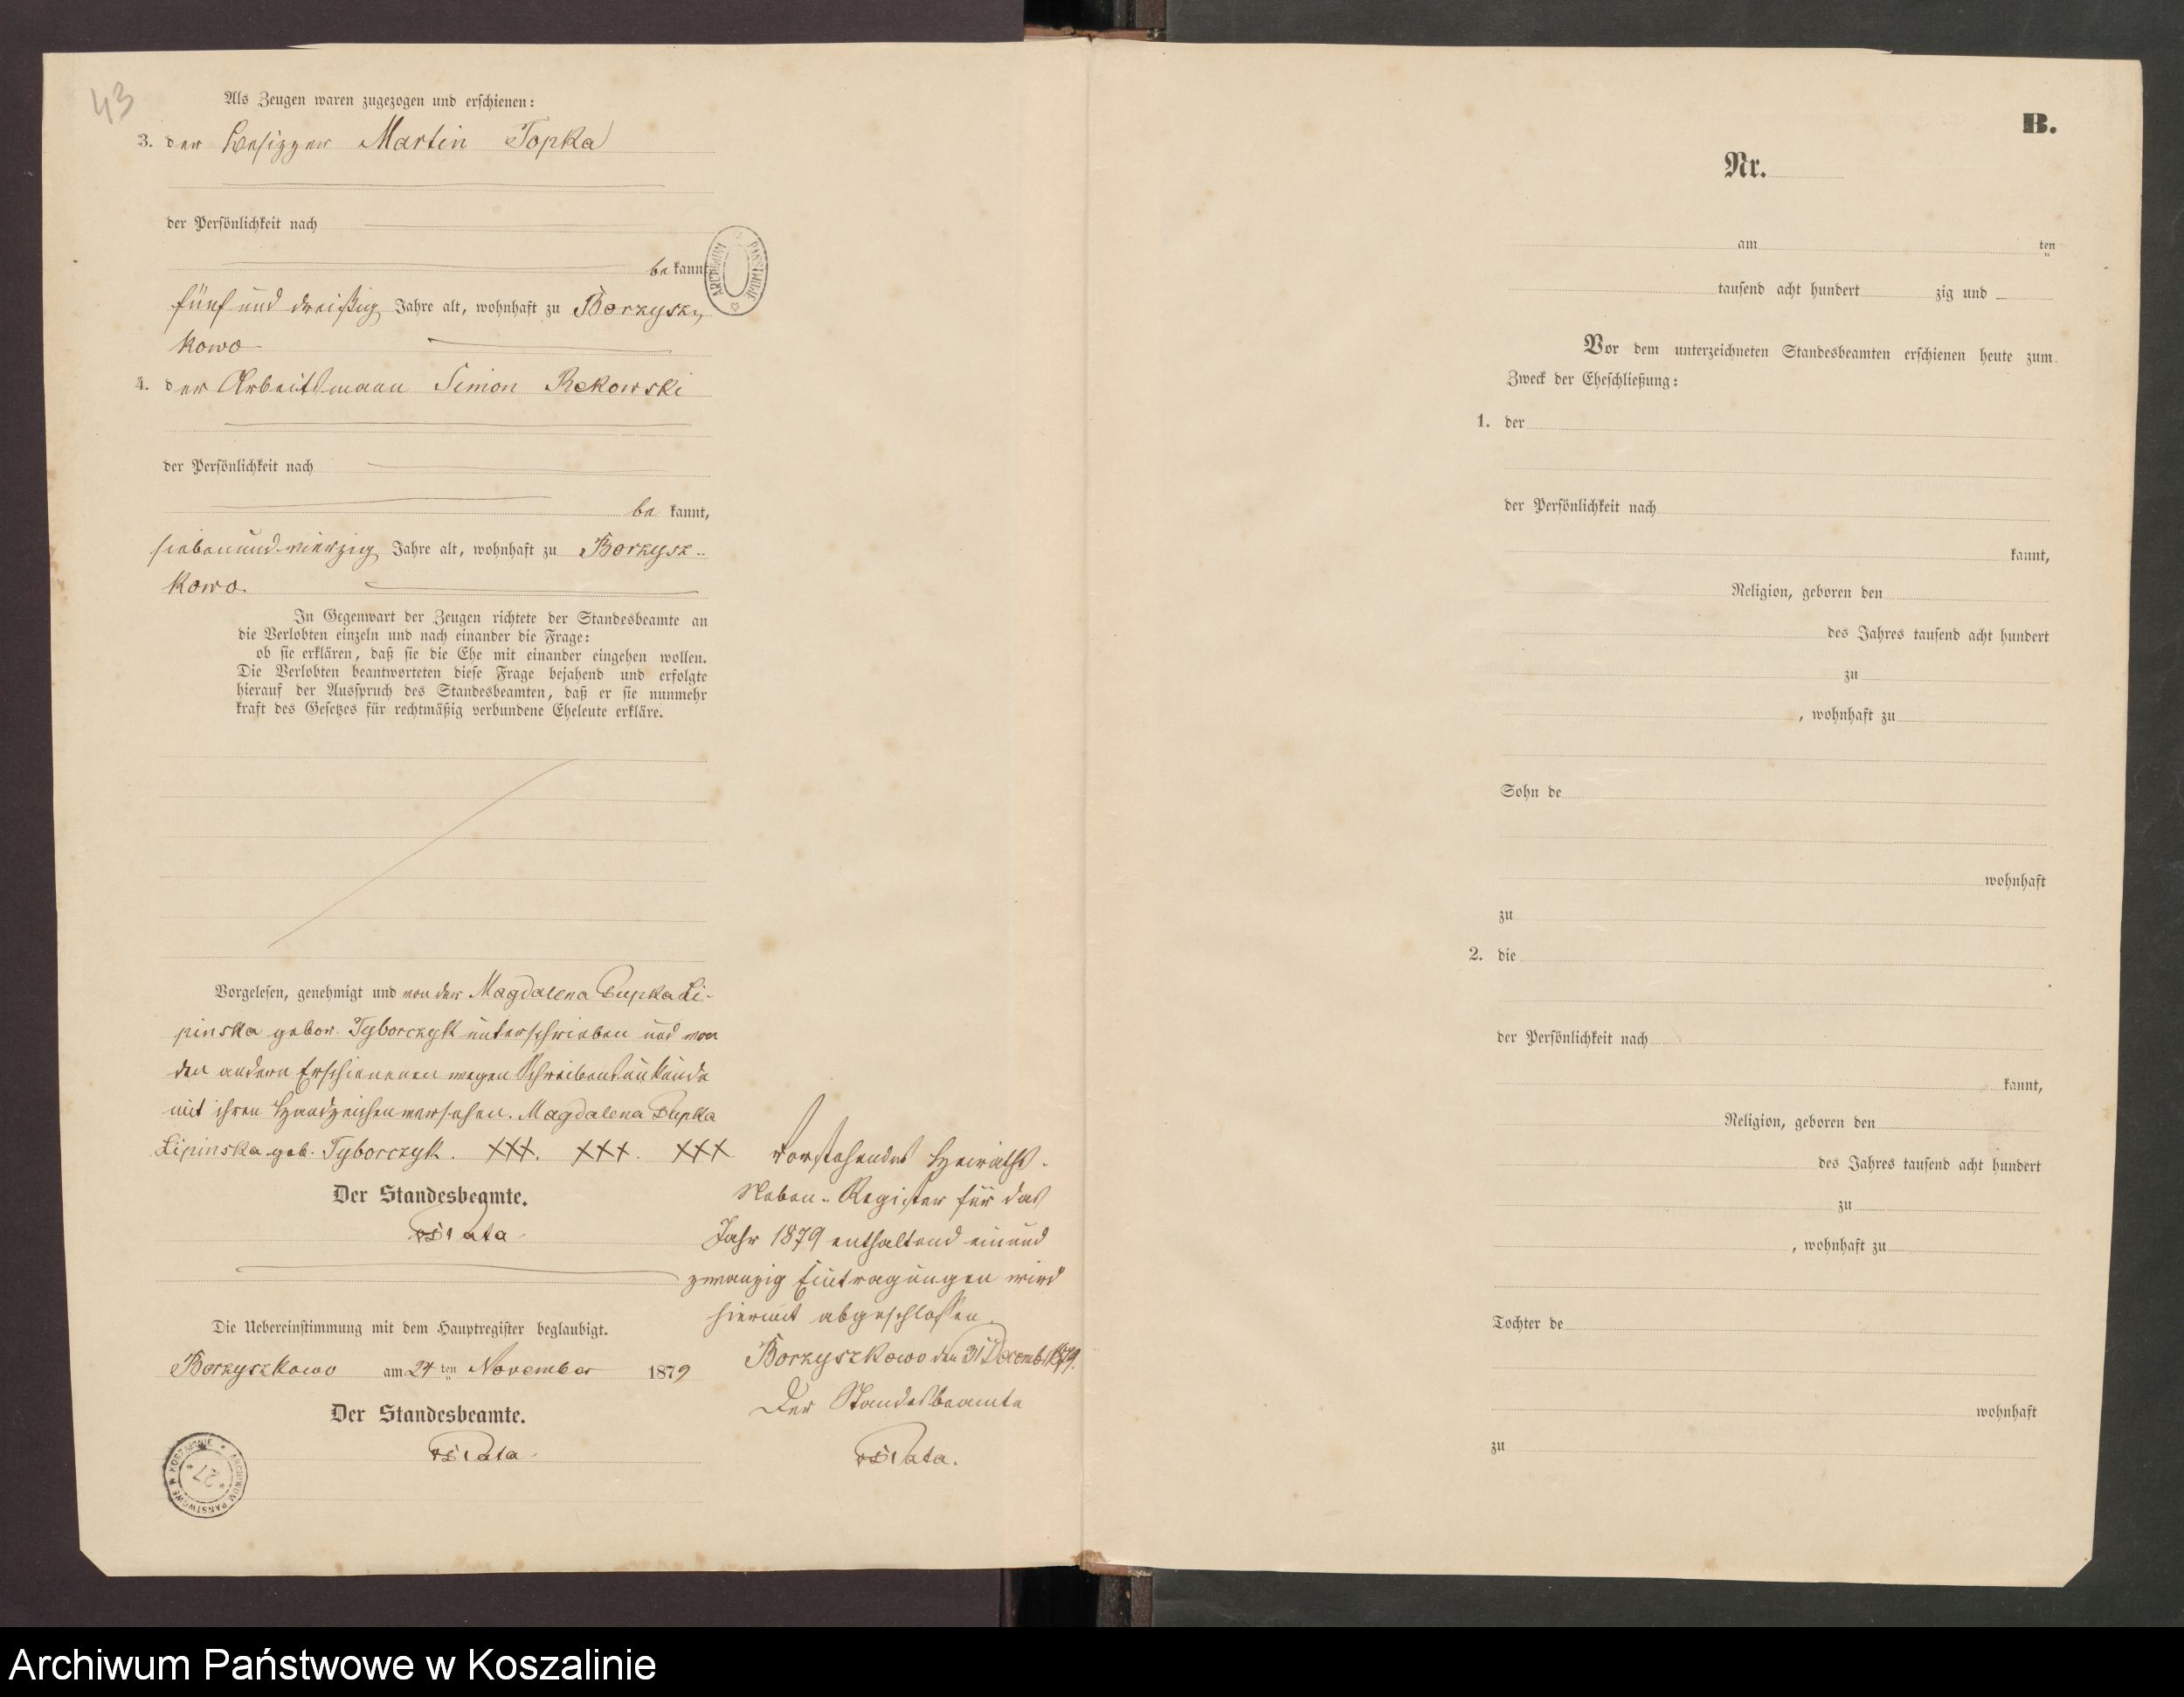 43
Als Zeugen waren zugezogen und erschienen:
3. der Besitzer Martin Topka
der Persönlichkeit nach
be kannt,
fünf und dreißig Jahre alt, wohnhaft zu Borzysz-
kowo
4. der Arbeitsmann Simon Rekowski
der Persönlichkeit nach
be kannt,
siebenundvierzig Jahre alt, wohnhaft zu Borzysz-
kowo.
In Gegenwart der Zeugen richtete der Standesbeamte an
die Verlobten einzeln und nach einander die Frage:
ob sie erklären, daß sie die Ehe mit einander eingehen wollen.
Die Verlobten beantworteten diese Frage bejahend und erfolgte
hierauf der Ausspruch des Standesbeamten, daß er sie nunmehr
kraft des Gesetzes für rechtmäßig verbundene Eheleute erkläre.
Vorgelesen, genehmigt und von der Magdalena Pupka Li-
pinska gebor. Tyborczyk unterschrieben und von
den andern Erschienenen wegen Schreibensunkunde
mit ihren Handzeichen versehen. Magdalena Pupka
Lipinska geb. Tyborczyk. XXX. XXX. XXX
Der Standesbeamte.
Die Uebereinstimmung mit dem Hauptregister beglaubigt.
Borzyszkowo am 24 ten November 1879
Der Standesbeamte.
Vorstehendes Heiraths-
Neben-Register für das
Jahr 1879 enthaltend einund
zwanzig Eintragungen wird
hiermit abgeschlossen.
Borzyszkowo den 31 Decemb. 1879.
Der Standesbeamte
ARCHIWUM PAŃSTWOWE
ARCHIWUM PAŃSTWOWE W KOSZALINIE
27
B.
Nr.
am ten
tausend acht hundert zig und
Vor dem unterzeichneten Standesbeamten erschienen heute zum
Zweck der Eheschließung:
1. der
der Persönlichkeit nach
kannt,
Religion, geboren den
des Jahres tausend acht hundert
zu
, wohnhaft zu
Sohn de
wohnhaft
zu
2. die
der Persönlichkeit nach
kannt,
Religion, geboren den
des Jahres tausend acht hundert
zu
, wohnhaft zu
Tochter de
wohnhaft
zu
Archiwum Państwowe w Koszalinie